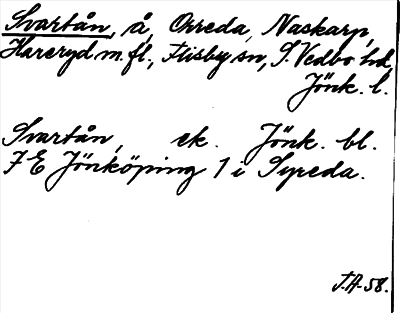 Svartån, å, Orreda, Naskarp,
Hareryd m.fl., Flisby sn, S. Vedbo hd,
Jönk. l.
Svartån, ek. Jönk. bl.
7 E Jönköping 1 i Syreda.
J.A. 58.